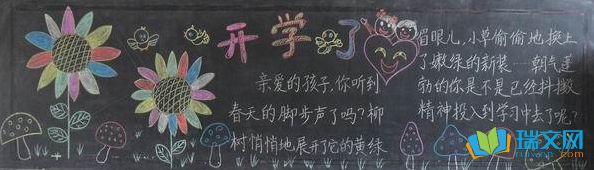 开学了
亲爱的孩子,你听到
春天的脚步声了吗?柳
树悄悄地展开了它的黄绿
眉眼儿,小草偷偷地换上
了嫩绿的新装……朝气蓬
勃的你是不是已经抖擞
精神投入到学习中去了呢?
瑞文网